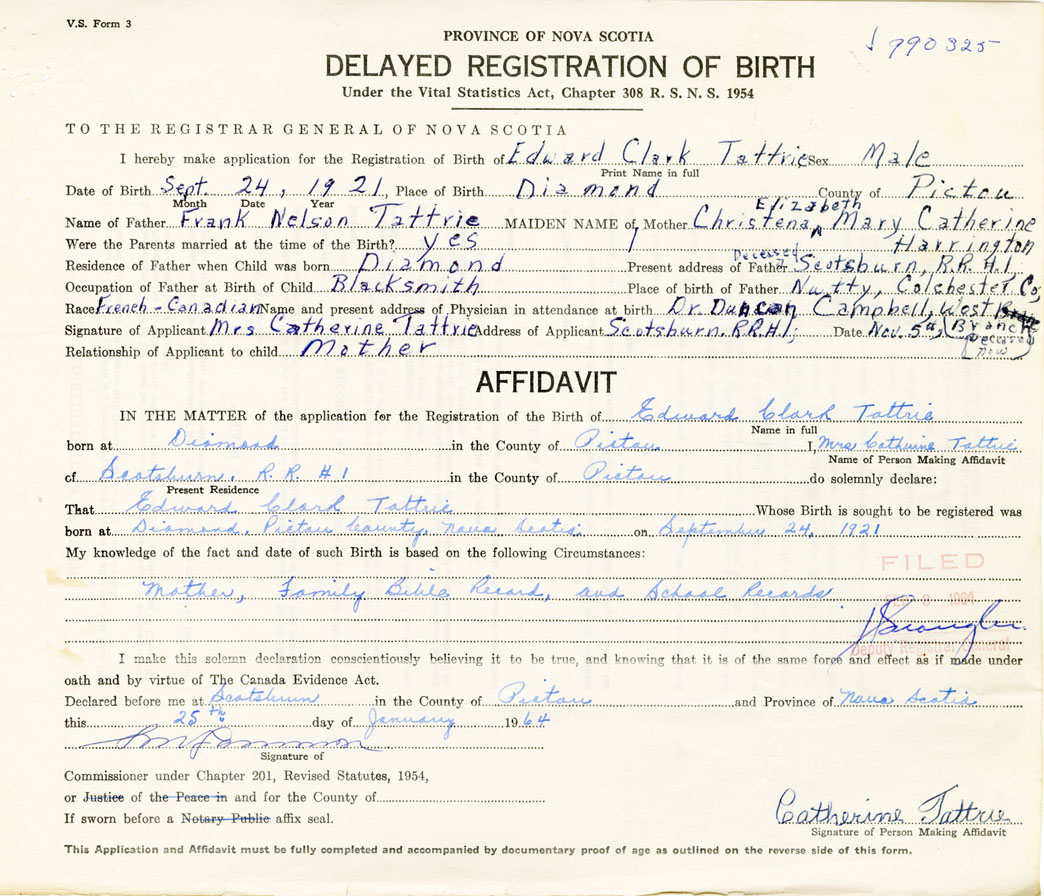 V.S. Form 3
PROVINCE OF NOVA SCOTIA
990325
DELAYED REGISTRATION OF BIRTH
Under the Vital Statistics Act, Chapter 308 R. S. N. S. 1954
TO THE REGISTRAR GENERAL OF NOVA SCOTIA
I hereby make application for the Registration of Birth of Edward Clark Tattrie Sex Male
Print Name in full
Date of Birth Sept. 24, 1921, Place of Birth Diamond County of Pictou
Month Date Year
Elizabeth
Name of Father Frank Nelson Tattrie MAIDEN NAME of Mother Christena Mary Catherine
Were the Parents married at the time of the Birth? yes Harrington
Deceased
Residence of Father when Child was born Diamond Present address of Father Scotsburn, R.R.#1
Occupation of Father at Birth of Child Blacksmith Place of birth of Father Nutty, Colchester Co,
Race French-Canadian Name and present address of Physician in attendance at birth Dr. Duncan Campbell, West
Signature of Applicant Mrs Catherine Tattrie Address of Applicant Scotsburn. R.R.#1, Date Nov. 5th, (Branch
Deceased
now)
Relationship of Applicant to child Mother
AFFIDAVIT
IN THE MATTER of the application for the Registration of the Birth of Edward Clark Tattrie
Name in full
born at Diamond in the County of Pictou I, Mrs Catherine Tattrie
Name of Person Making Affidavit
of Scotsburn. R. R. #1 in the County of Pictou do solemnly declare:
Present Residence
That Edward Clark Tattrie Whose Birth is sought to be registered was
born at Diamond, Pictou County, Nova Scotia on September 24, 1921
My knowledge of the fact and date of such Birth is based on the following Circumstances:
FILED
Mother, Family Bible Record, and School Records
8 1964
Deputy Registrar General
I make this solemn declaration conscientiously believing it to be true, and knowing that it is of the same force and effect as if made under
oath and by virtue of The Canada Evidence Act.
Declared before me at Scotsburn in the County of Pictou and Province of Nova Scotia
this 25th day of January 1964
Signature of
Commissioner under Chapter 201, Revised Statutes, 1954,
or Justice of the Peace in and for the County of
If sworn before a Notary Public affix seal.
Catherine Tattrie
Signature of Person Making Affidavit
This Application and Affidavit must be fully completed and accompanied by documentary proof of age as outlined on the reverse side of this form.